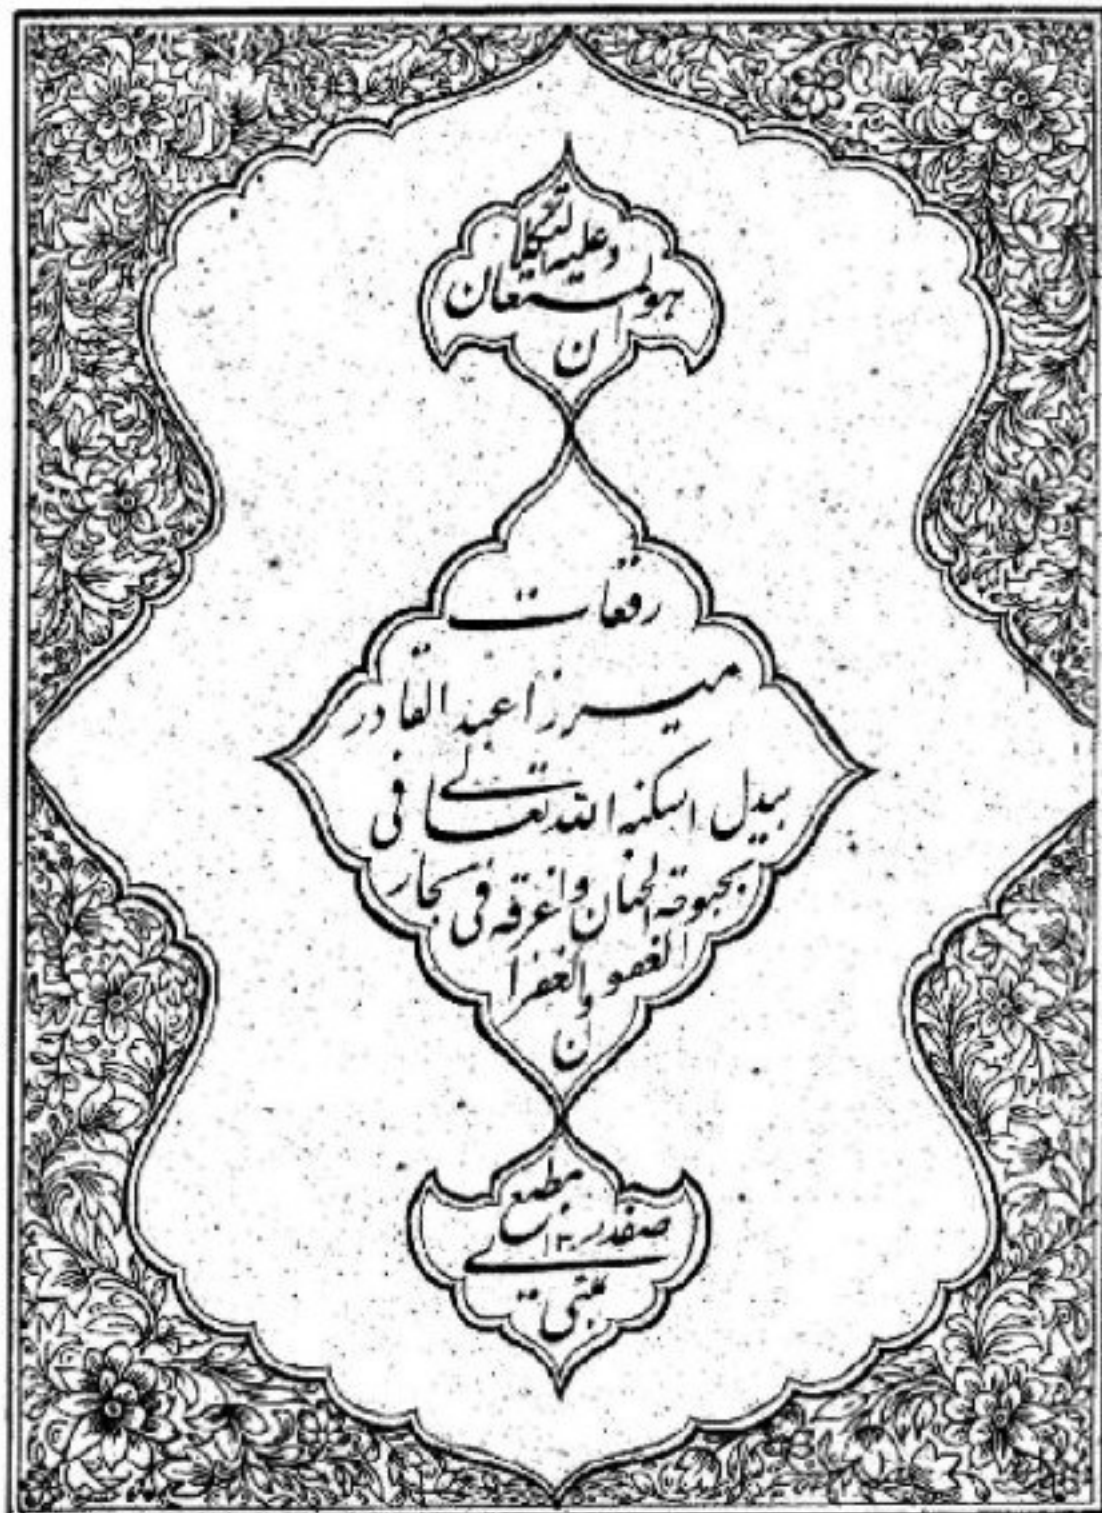 هو المستعان
و علیه التکلان
رقعات
میرزا عبدالقادر
بیدل اسکنه الله تعالی فی
بحبوحة الجنان و اغرقه فی بحار
العفو و الغفران
مطبع
صفدری
بمبئی